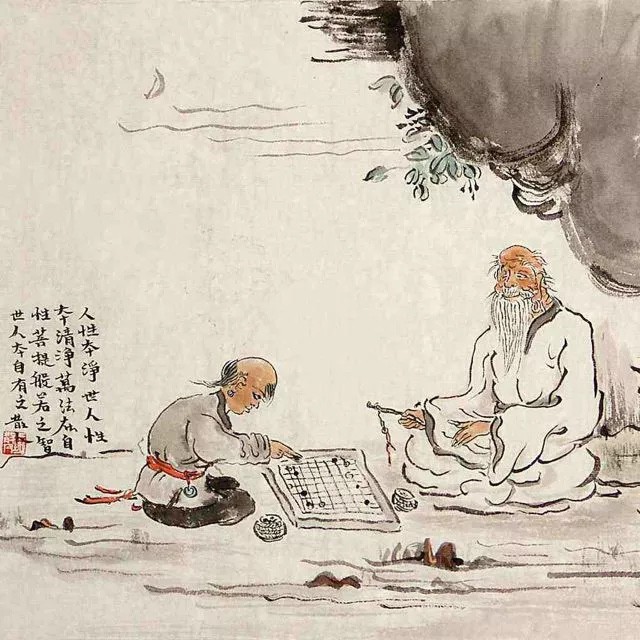 人性本淨世人性
本清淨萬法在自
性菩提般若之智
世人本自有之